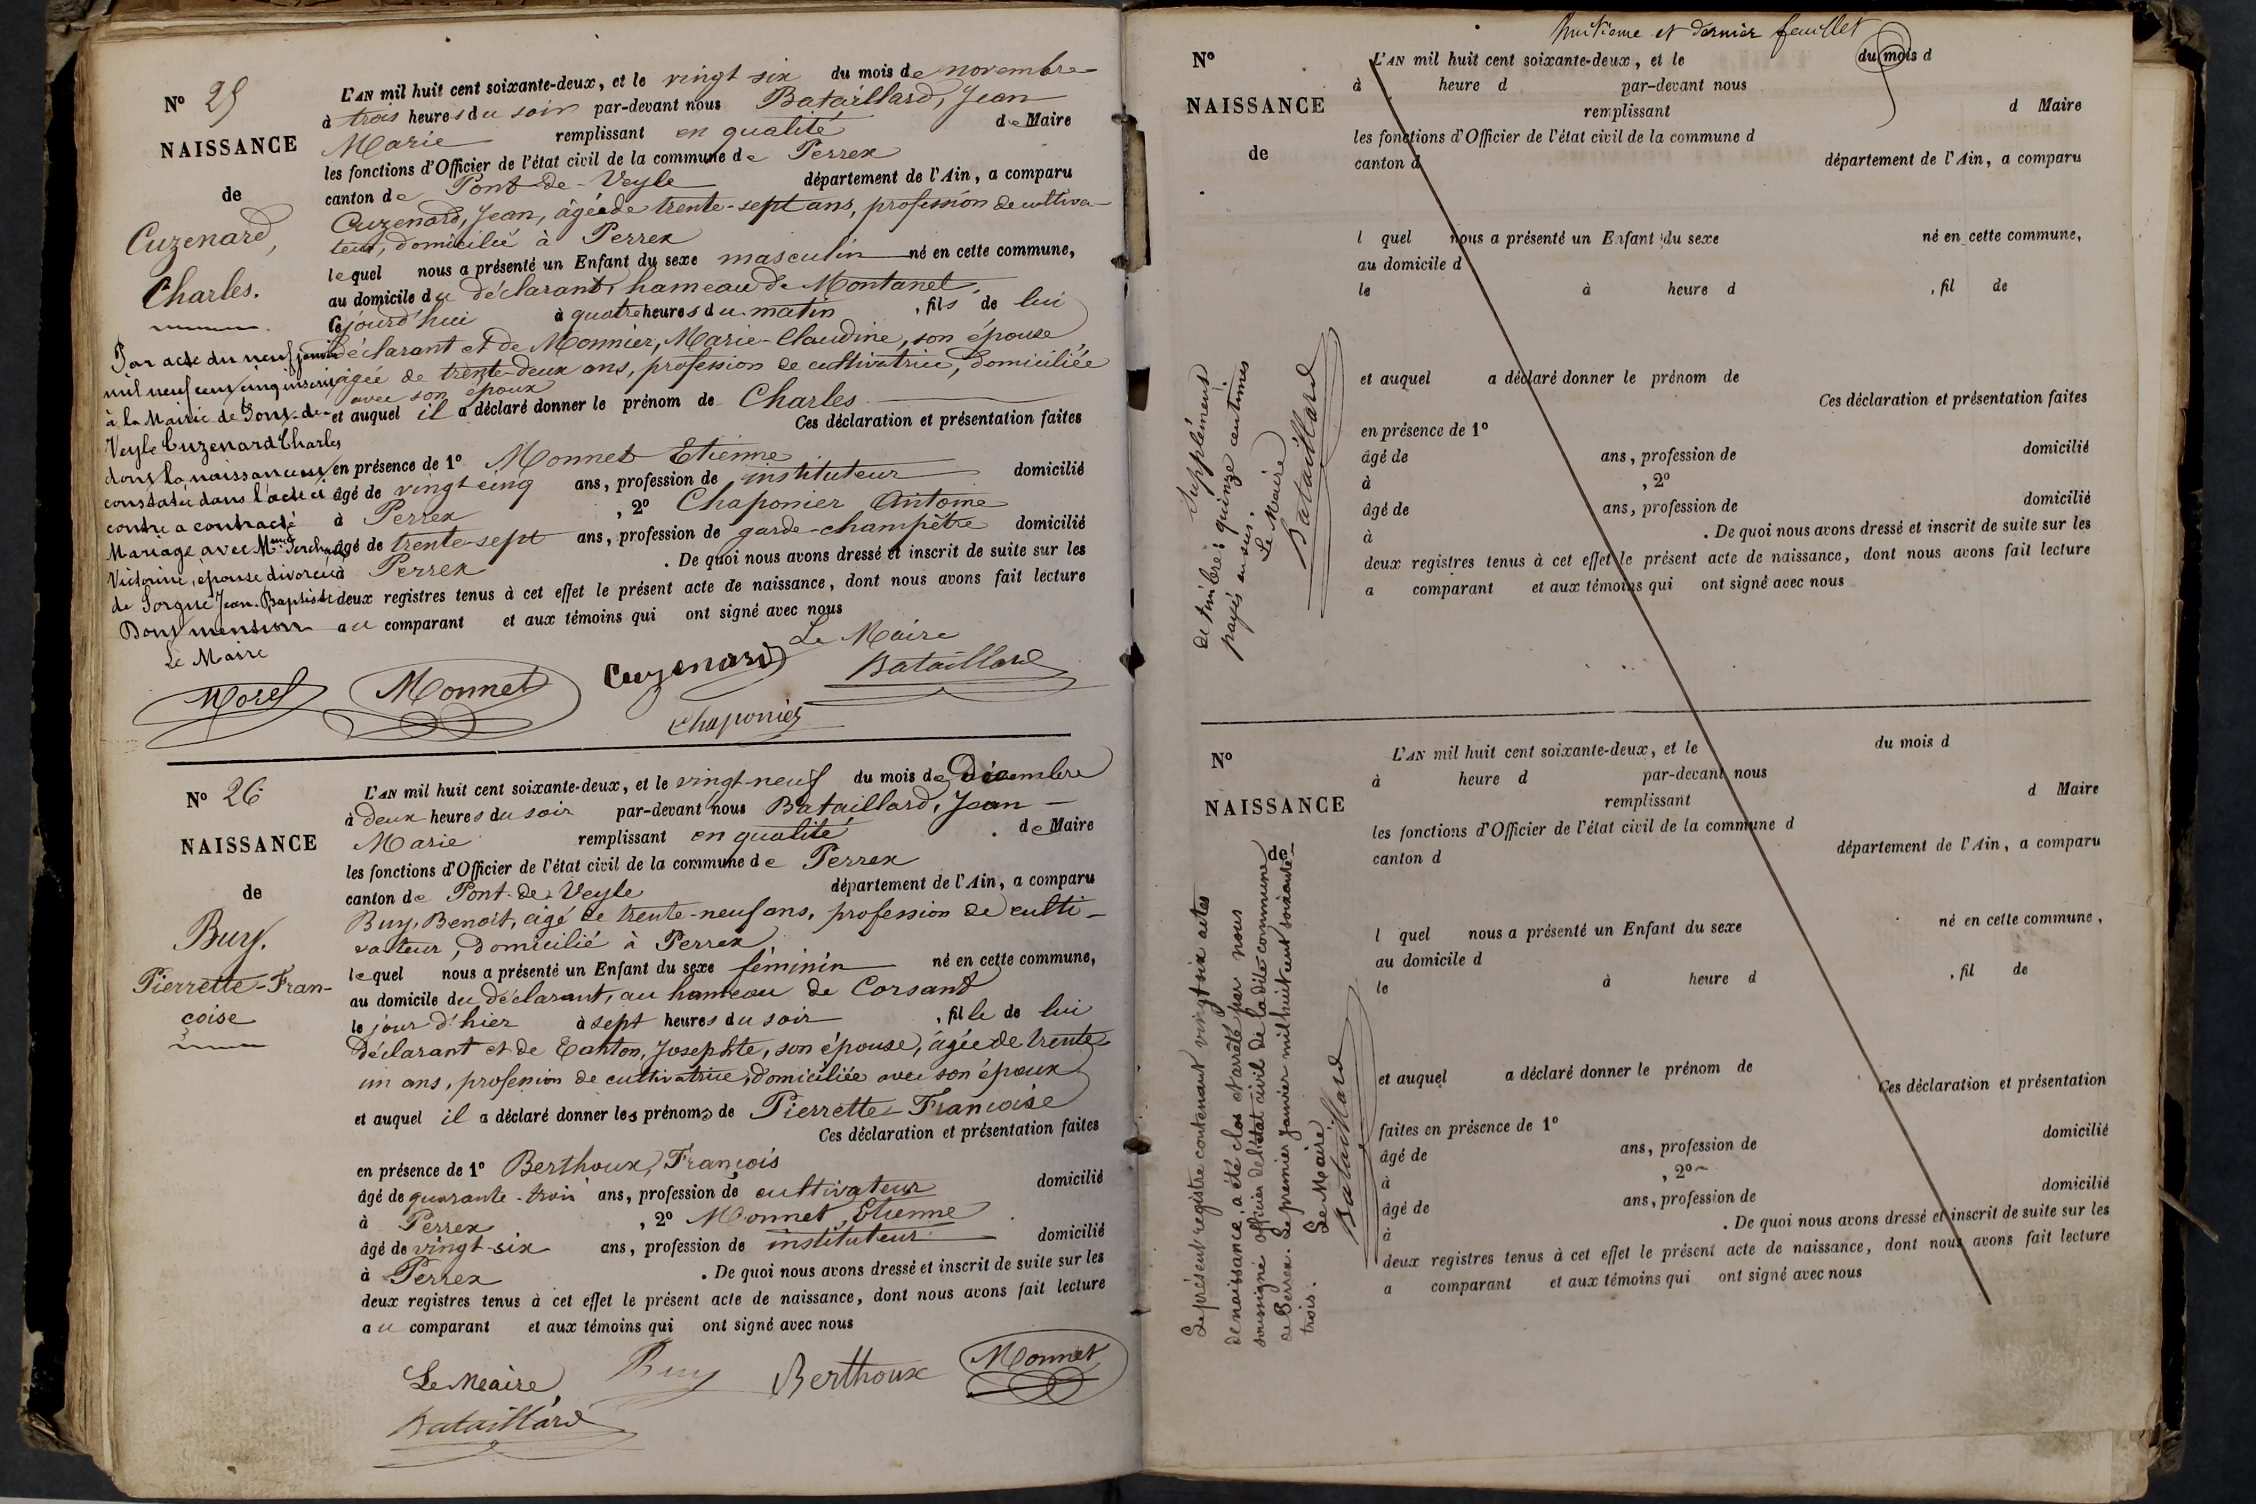 N° 25
NAISSANCE
de
Cuzenard,
Charles.
L'AN mil huit cent soixante-deux, et le vingt six du mois de novembre
à trois heures du soir par-devant nous Bataillard, Jean
Marie remplissant en qualité de Maire
les fonctions d'Officier de l'état civil de la commune de Perrex
canton de Pont-de-Veyle département de l'Ain, a comparu
Cuzenard, Jean, âgé de trente-sept ans, profession de cultiva-
teur, domicilié à Perrex
lequel nous a présenté un Enfant du sexe masculin né en cette commune,
au domicile du déclarant, hameau de Montanel,
Cejourd'hui à quatre heures du matin, fils de lui
déclarant et de Monnier, Marie-Claudine, son épouse,
âgée de trente-deux ans, profession de cultivatrice, domiciliée
avec son époux
et auquel il a déclaré donner le prénom de Charles
Ces déclaration et présentation faites
en présence de 1° Monnet Etienne
âgé de vingt cinq ans, profession de instituteur domicilié
à Perrex, 2° Chaponier Antoine
âgé de trente-sept ans, profession de garde-champêtre domicilié
à Perrex. De quoi nous avons dressé et inscrit de suite sur les
deux registres tenus à cet effet le présent acte de naissance, dont nous avons fait lecture
au comparant et aux témoins qui ont signé avec nous
Par acte du neuf janvier
mil neuf cent cinq inscrit
à la Mairie de Pont-de-
Veyle Cuzenard Charles
dont la naissance est
constatée dans l'acte ci
contre a contracté
Mariage avec Mme
Victorine, épouse divorcée
de Sorgue Jean-Baptiste
Dont mention
Le Maire
Morel
Monnet
Cuzenard
Le Maire
Bataillard
Chaponier
N° 26
NAISSANCE
de
Buy.
Pierrette-Fran-
çoise
L'AN mil huit cent soixante-deux, et le vingt-neuf du mois de Décembre
à deux heures du soir par-devant nous Bataillard, Jean
Marie remplissant en qualité de Maire
les fonctions d'Officier de l'état civil de la commune de Perrex
canton de Pont-de-Veyle département de l'Ain, a comparu
Buy, Benoit, âgé de trente-neuf ans, profession de culti-
vateur, domicilié à Perrex
lequel nous a présenté un Enfant du sexe féminin né en cette commune,
au domicile du déclarant, au hameau de Corsant
le jour d'hier à sept heures du soir, fille de lui
déclarant et de Canton, Josephte, son épouse, âgée de trente
un ans, profession de cultivatrice, domiciliée avec son époux
et auquel il a déclaré donner les prénoms de Pierrette-Françoise
Ces déclaration et présentation faites
en présence de 1° Berthoux, François
âgé de quarante-trois ans, profession de cultivateur domicilié
à Perrex, 2° Monnet, Etienne
âgé de vingt-six ans, profession de instituteur domicilié
à Perrex. De quoi nous avons dressé et inscrit de suite sur les
deux registres tenus à cet effet le présent acte de naissance, dont nous avons fait lecture
au comparant et aux témoins qui ont signé avec nous
Le Maire,
Bataillard
Buy
Berthoux
Monnet
huitième et dernier feuillet
N°
NAISSANCE
de
L'AN mil huit cent soixante-deux, et le du mois d
à heure d par-devant nous
remplissant d Maire
les fonctions d'Officier de l'état civil de la commune d
canton d département de l'Ain, a comparu
l quel nous a présenté un Enfant du sexe né en cette commune,
au domicile d
le à heure d , fil de
et auquel a déclaré donner le prénom de
Ces déclaration et présentation faites
en présence de 1°
âgé de ans, profession de domicilié
à , 2°
âgé de ans, profession de domicilié
à . De quoi nous avons dressé et inscrit de suite sur les
deux registres tenus à cet effet le présent acte de naissance, dont nous avons fait lecture
a comparant et aux témoins qui ont signé avec nous
Suppléments
de timbres quinze centimes
payés en sus.
Le Maire
Bataillard
N°
NAISSANCE
de
L'AN mil huit cent soixante-deux, et le du mois d
à heure d par-devant nous
remplissant d Maire
les fonctions d'Officier de l'état civil de la commune d
canton d département de l'Ain, a comparu
l quel nous a présenté un Enfant du sexe né en cette commune,
au domicile d
le à heure d , fil de
et auquel a déclaré donner le prénom de
Ces déclaration et présentation
faites en présence de 1°
âgé de ans, profession de domicilié
à , 2°
âgé de ans, profession de domicilié
à . De quoi nous avons dressé et inscrit de suite sur les
deux registres tenus à cet effet le présent acte de naissance, dont nous avons fait lecture
a comparant et aux témoins qui ont signé avec nous
Le présent registre contenant vingt six actes
de naissance, a été clos et arrêté par nous
soussigné officier de l'état civil de la dite commune
de Perrex. Le premier janvier mil huit cent soixante-
trois.
Le Maire
Bataillard